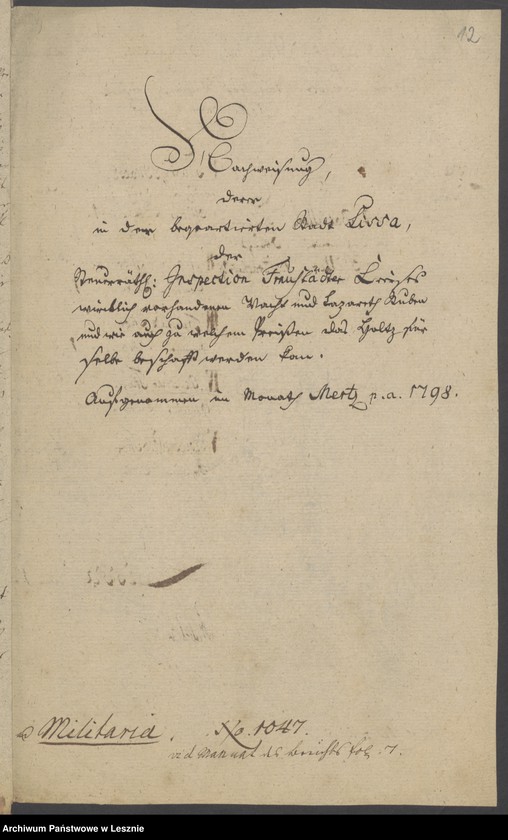 12
Nachweisung,
derer
in der bequartierten Stadt Lissa,
der
Steuerräthl: Inspection Fraustädter Creyses
würcklich vorhandenen Wacht und Lazareth Stuben
und wie auch zu welchem Preißen das Holtz für
selbe beschafft werden kan.
Aufgenommen im Monath Mertz p. a. 1798.
Militaria. No. 1047.
vid Manual des Berichts fol. 7.
Archiwum Państwowe w Lesznie